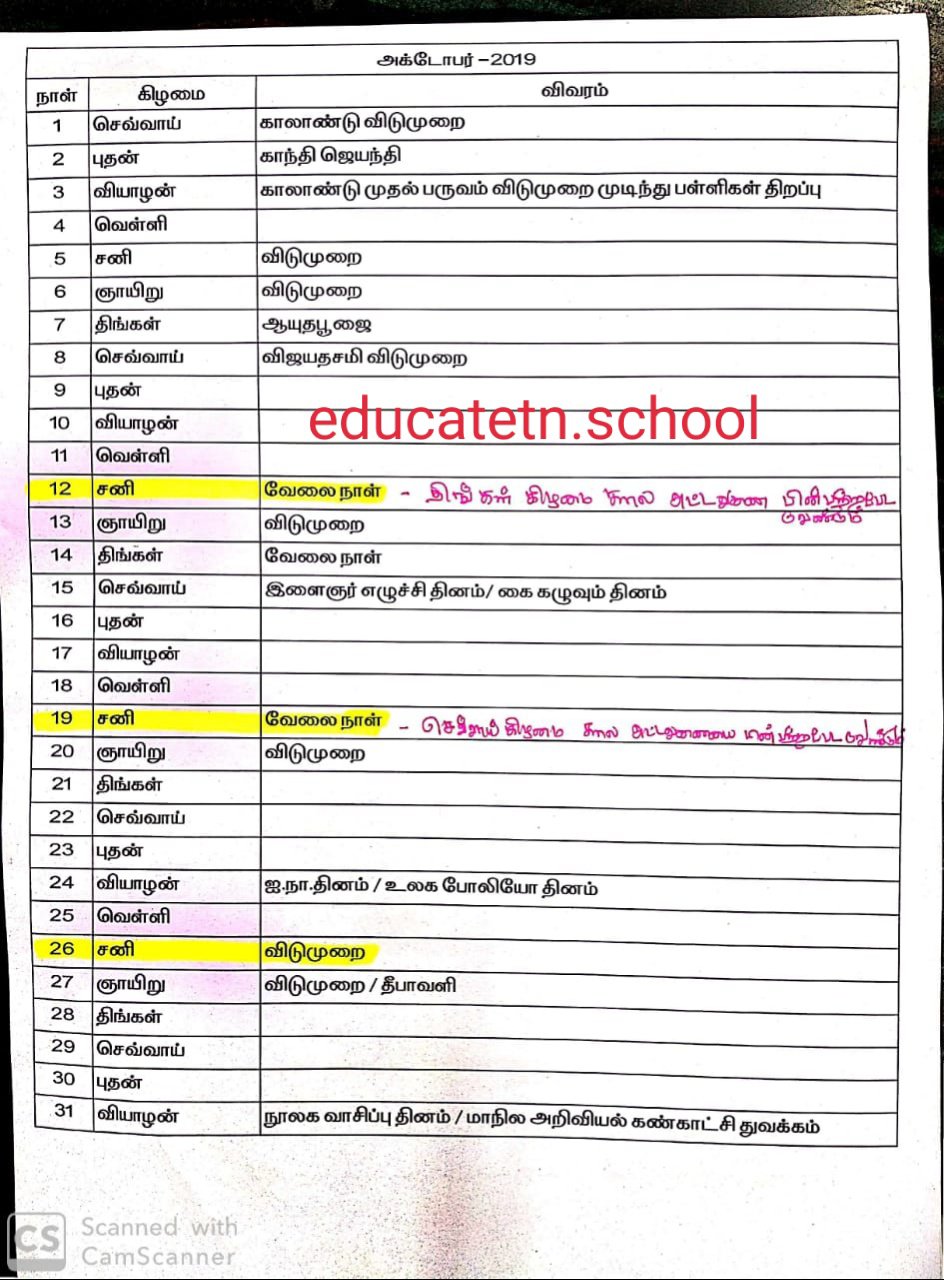 அக்டோபர் –2019
நாள் கிழமை விவரம்
1 செவ்வாய் காலாண்டு விடுமுறை
2 புதன் காந்தி ஜெயந்தி
3 வியாழன் காலாண்டு முதல் பருவம் விடுமுறை முடிந்து பள்ளிகள் திறப்பு
4 வெள்ளி
5 சனி விடுமுறை
6 ஞாயிறு விடுமுறை
7 திங்கள் ஆயுதபூஜை
8 செவ்வாய் விஜயதசமி விடுமுறை
9 புதன்
educatetn.school
10 வியாழன்
11 வெள்ளி
12 சனி வேலை நாள் - திங்கள் கிழமை கால அட்டவணை
13 ஞாயிறு விடுமுறை
14 திங்கள் வேலை நாள்
15 செவ்வாய் இளைஞர் எழுச்சி தினம்/ கை கழுவும் தினம்
16 புதன்
17 வியாழன்
18 வெள்ளி
19 சனி வேலை நாள் - செவ்வாய் கிழமை கால அட்டவணையை
20 ஞாயிறு விடுமுறை
21 திங்கள்
22 செவ்வாய்
23 புதன்
24 வியாழன் ஐ.நா.தினம் / உலக போலியோ தினம்
25 வெள்ளி
26 சனி விடுமுறை
27 ஞாயிறு விடுமுறை / தீபாவளி
28 திங்கள்
29 செவ்வாய்
30 புதன்
31 வியாழன் நூலக வாசிப்பு தினம் / மாநில அறிவியல் கண்காட்சி துவக்கம்
CS Scanned with
CamScanner